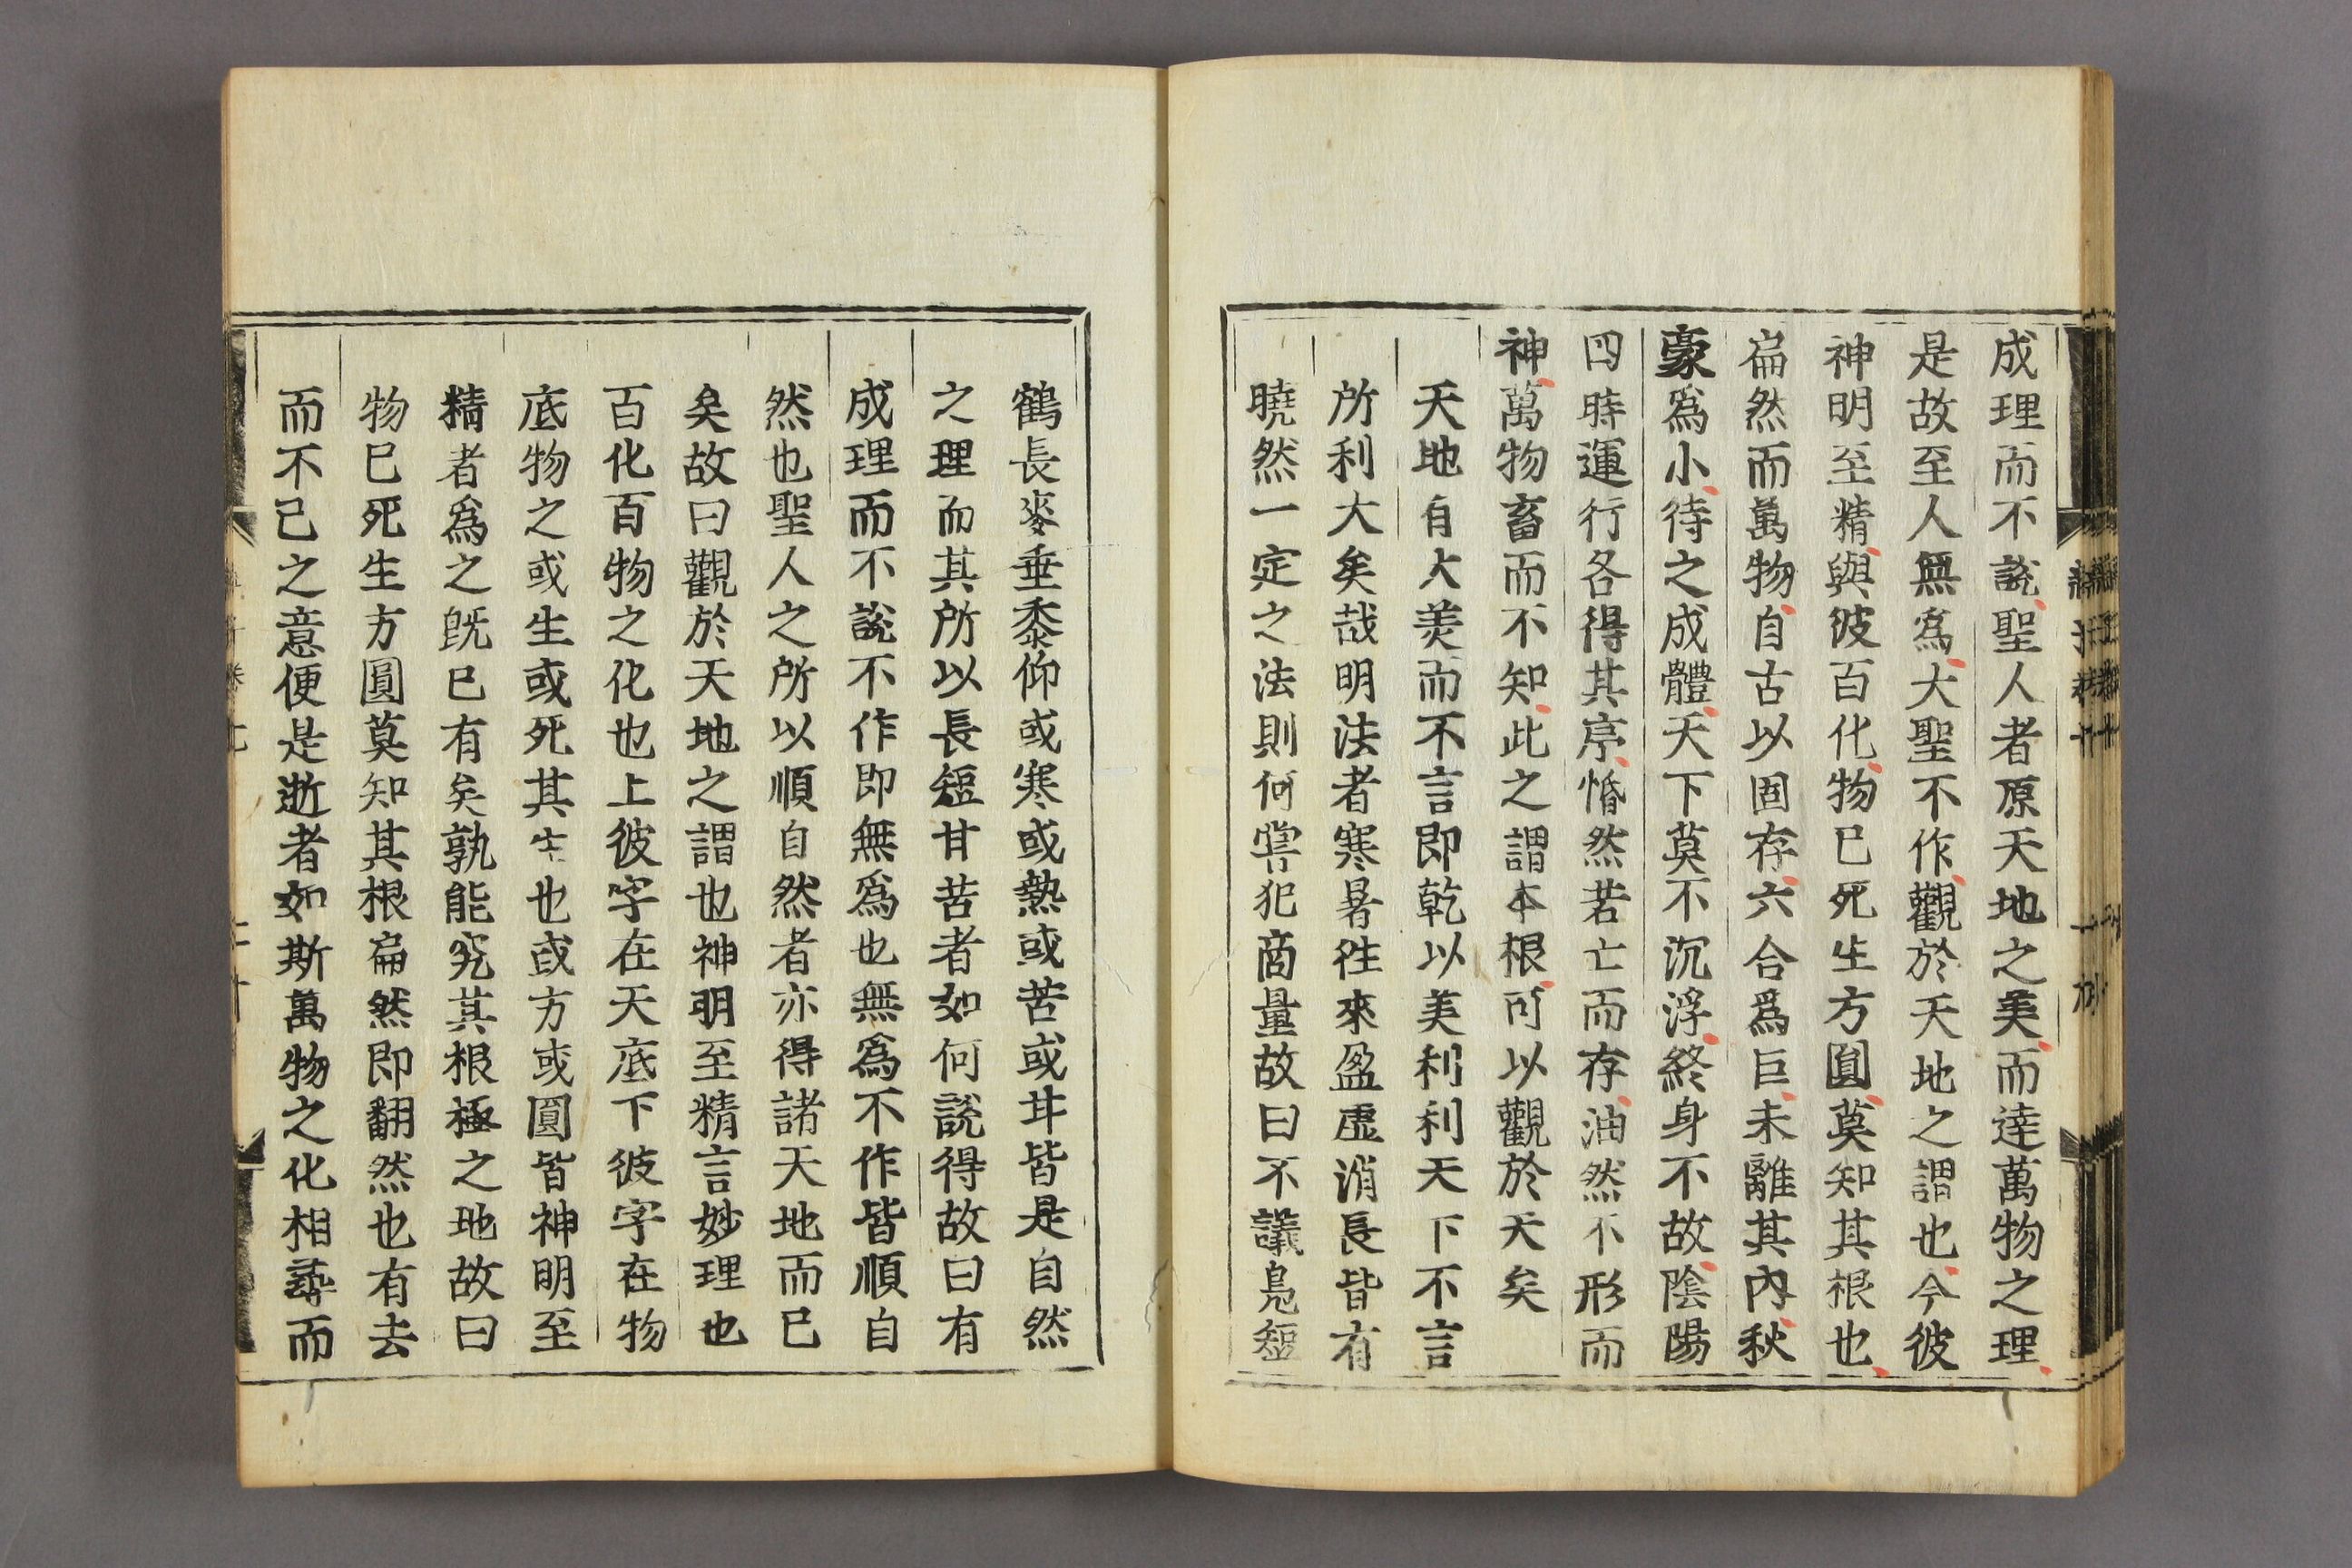 成理而不說聖人者原天地之美而達萬物之理
是故至人無爲大聖不作觀於天地之謂也今彼
神明至精與彼百化物已死生方圓莫知其根也
扁然而萬物自古以固存六合爲巨未離其內秋
豪爲小待之成體天下莫不沉浮終身不故陰陽
四時運行各得其序惛然若亡而存油然不形而
神萬物畜而不知此之謂本根可以觀於天矣
天地有大美而不言即乾以美利利天下不言
所利大矣哉明法者寒暑徃來盈虛消長皆有
曉然一定之法則何甞犯商量故曰不議鳧短
鶴長麥垂黍仰或寒或熱或苦或甘皆是自然
之理而其所以長短甘苦者如何說得故曰有
成理而不說不作即無爲也無爲不作皆順自
然也聖人之所以順自然者亦得諸天地而已
矣故曰觀於天地之謂也神明至精言妙理也
百化百物之化也上彼字在天底下彼字在物
底物之或生或死其生也或方或圓皆神明至
精者爲之旣已有矣孰能究其根極之地故曰
物已死生方圓莫知其根扁然即翻然也有去
而不已之意便是逝者如斯萬物之化相尋而